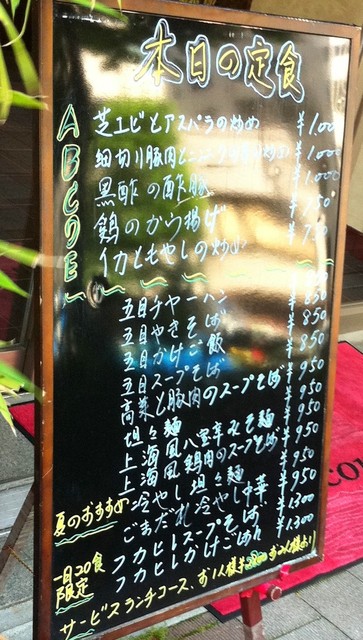 本日の定食
A 芝エビとアスパラの炒め ¥1,000
B 細切り豚肉と の炒め ¥1,000
C 黒酢の酢豚 ¥1,000
D 鶏のから揚げ ¥950
E イカともやしの炒め ¥750
五目チャーハン ¥850
五目やきそば ¥850
五目かけご飯 ¥850
五目スープそば ¥850
高菜と豚肉のスープそば ¥950
坦々麺 ¥950
上海風八宝辛みそ麺 ¥950
上海風鶏肉のスープそば ¥950
夏のおすすめ 冷やし坦々麺 ¥950
ごまだれ冷やし中華 ¥950
一日20食限定 フカヒレスープそば ¥1,300
フカヒレかけごはん ¥1,300
サービスランチコース、お1人様